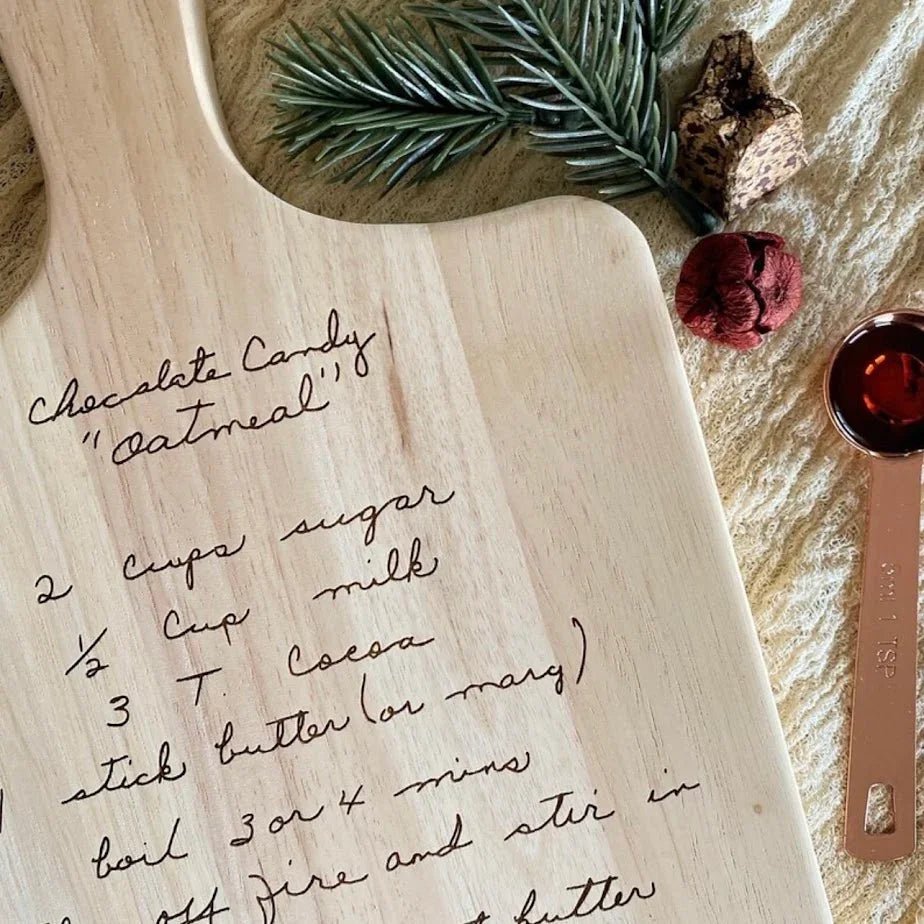 Chocolate Candy
"Oatmeal"
2 cups sugar
1/2 cup milk
3 T. Cocoa
1 stick butter (or marg)
boil 3 or 4 mins
off fire and stir in
butter
1 TSP